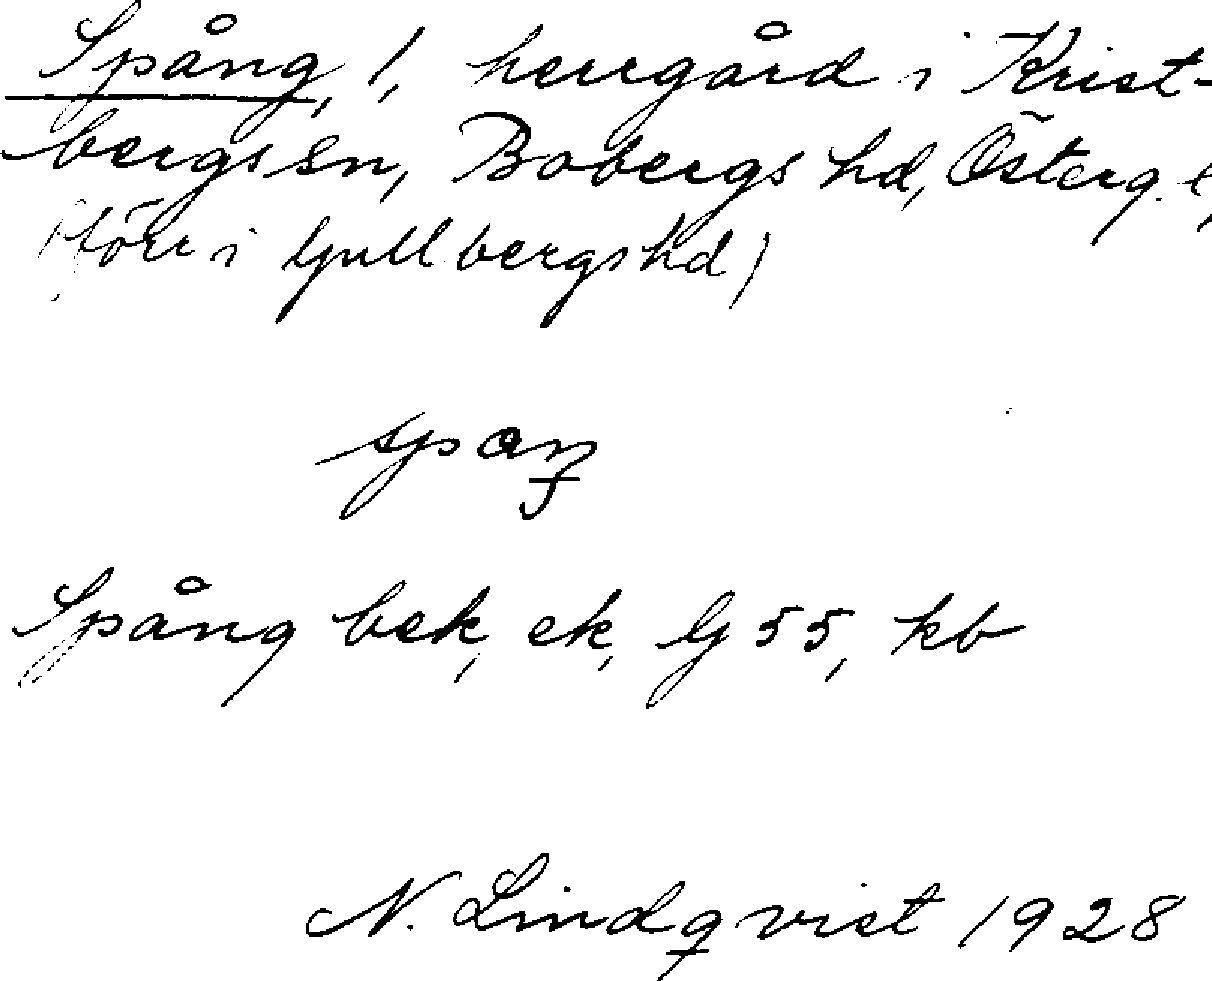 Spång, 1, herrgård i Krist-
bergs sn, Bobergs hd, Österg. l,
(förr i Gullbergs hd)
spaŋ
Spång bek, ek, G 55, kb
N. Lindqvist 1928